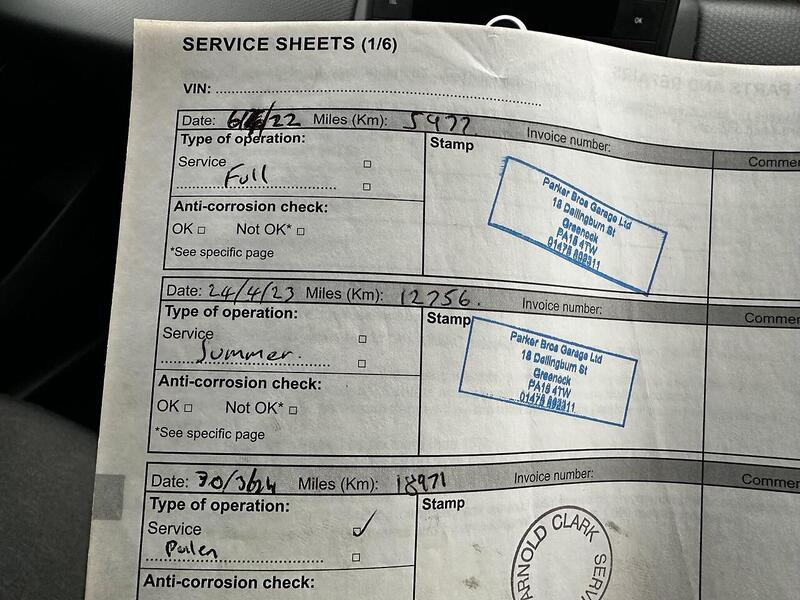 SERVICE SHEETS (1/6)
VIN:
Date: 6/ /22 Miles (Km): 5977 Invoice number:
Type of operation: Stamp Commer
Service
Full
Parker Bros Garage Ltd
18 Dellingburn St
Greenock
PA15 4TW
Anti-corrosion check:
OK Not OK*
*See specific page
Date: 24/4/23 Miles (Km): 12756. Invoice number:
Type of operation: Stamp Commer
Service
Summer.
Parker Bros Garage Ltd
18 Dellingburn St
Greenock
PA15 4TW
Anti-corrosion check:
OK Not OK*
*See specific page
Date: 30/3/24 Miles (Km): 18971 Invoice number:
Type of operation: Stamp Commer
Service ✓
Pollen
ARNOLD CLARK SERV
Anti-corrosion check: